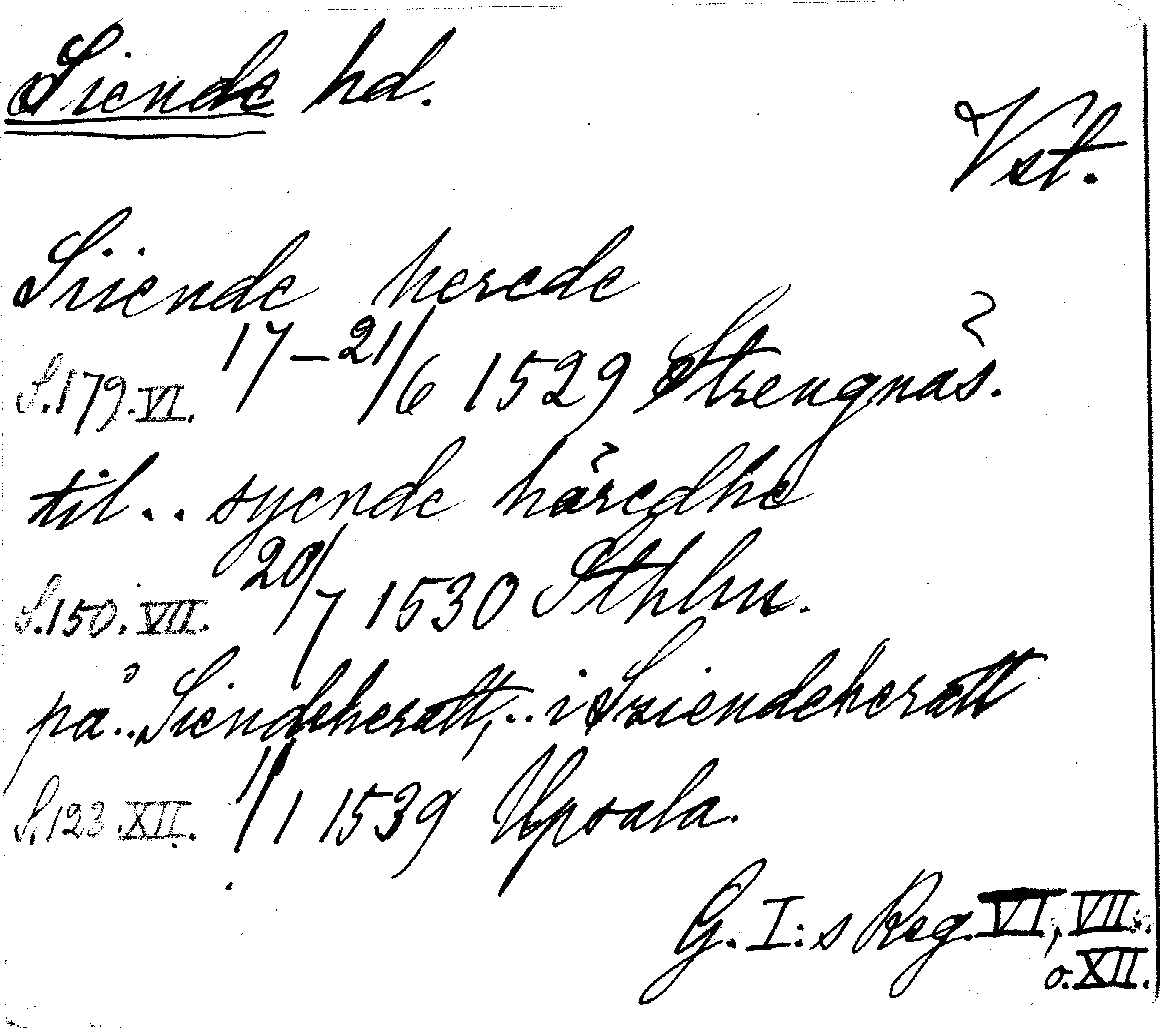 Siende hd.
Vst.
Siiende herede
S.179.VI. 17-21/6 1529 Strengnäs.
til.. syende häredhe
S.150.VII. 20/7 1530 Sthlm.
på.. Siendeheratt,.. i Sziendeheratt
S.123.XII. 1/1 1539 Upsala.
G. I:s Reg. VI, VII.
o. XII.